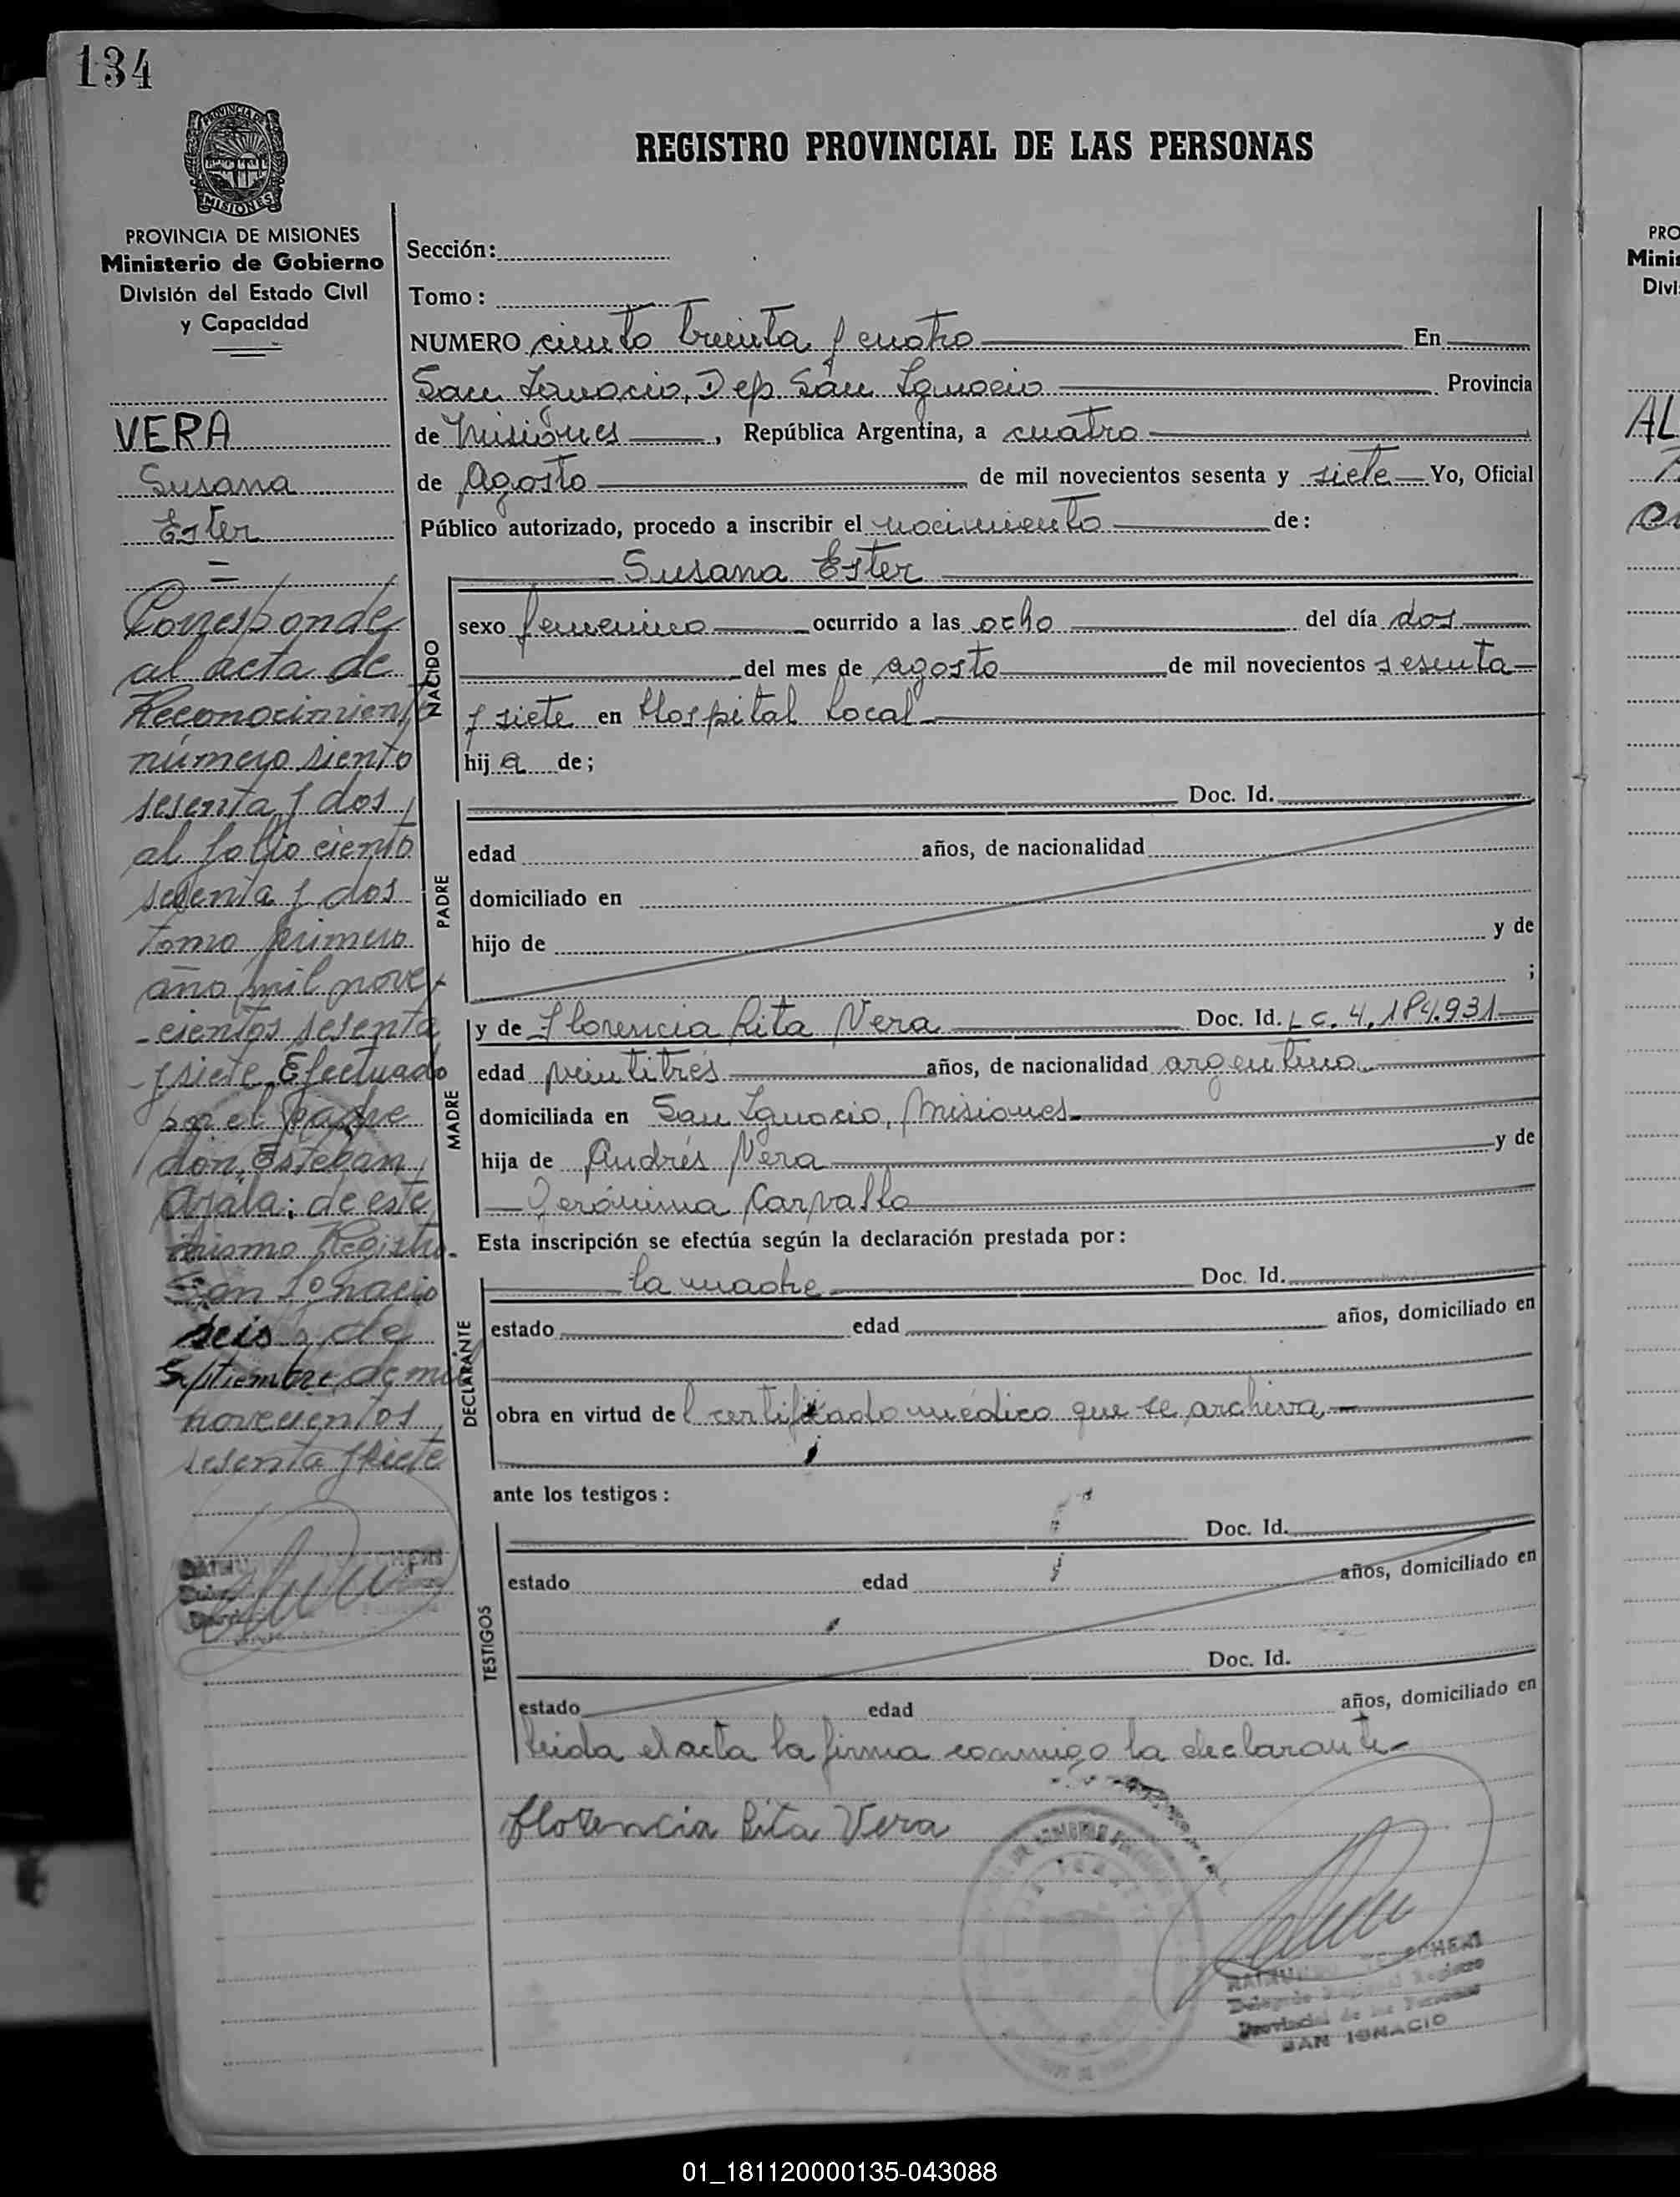 134
REGISTRO PROVINCIAL DE LAS PERSONAS
PROVINCIA DE
MISIONES
PROVINCIA DE MISIONES
Ministerio de Gobierno
División del Estado Civil
y Capacidad
VERA
Susana
Ester
=
Corresponde
al acta de
Reconocimiento
número siento
sesenta y dos,
al folio ciento
sesenta y dos
tomo primero
año mil nove
-cientos sesenta
-y siete, Efectuado
por el padre
don, Esteban
Ayala; de este
mismo Registro.
San Ignacio
seis, de
Septiembre de mil
novecientos
sesenta y siete
Sección:
Tomo:
NUMERO ciento treinta y cuatro En
San Ignacio, Dep. San Ignacio Provincia
de Misiones, República Argentina, a cuatro
de Agosto de mil novecientos sesenta y siete Yo, Oficial
Público autorizado, procedo a inscribir el nacimiento de:
NACIDO
Susana Ester
sexo femenino ocurrido a las ocho del día dos
del mes de agosto de mil novecientos sesenta
y siete en Hospital Local
hij a de;
PADRE
Doc. Id.
edad años, de nacionalidad
domiciliado en
hijo de y de
;
MADRE
y de Florencia Rita Vera Doc. Id. L C. 4.184.931
edad veintitrés años, de nacionalidad argentina
domiciliada en San Ignacio, Misiones
hija de Andrés Vera y de
Jerónima Carvallo
Esta inscripción se efectúa según la declaración prestada por:
DECLARANTE
la madre Doc. Id.
estado edad años, domiciliado en
obra en virtud del certificado médico que se archiva
ante los testigos:
TESTIGOS
Doc. Id.
estado edad años, domiciliado en
Doc. Id.
estado edad años, domiciliado en
leida el acta la firma conmigo la declarante-
Florencia Rita Vera
Delegado Registro
Provincial de las Personas
SAN IGNACIO
PRO
Minis
Divi
AL
01_181120000135-043088